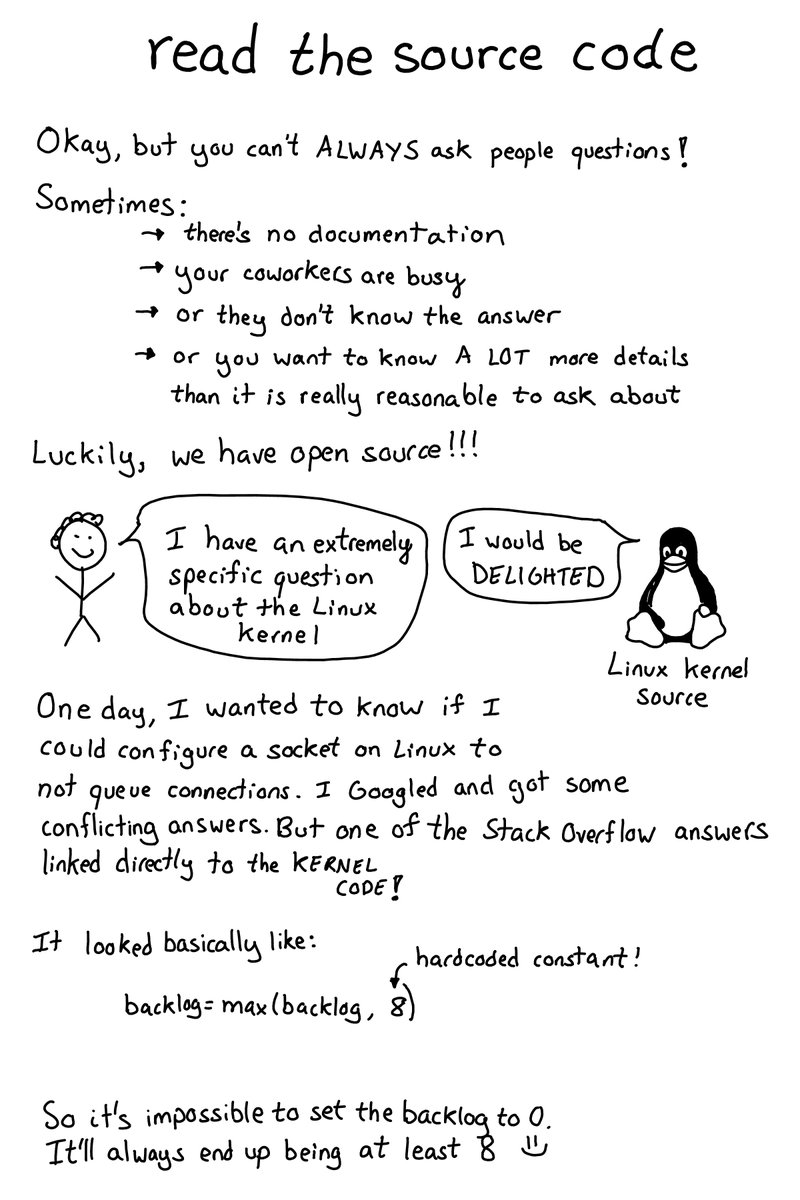 read the source code
Okay, but you can't ALWAYS ask people questions!
Sometimes:
→ there's no documentation
→ your coworkers are busy
→ or they don't know the answer
→ or you want to know A LOT more details
than it is really reasonable to ask about
Luckily, we have open source!!!
I have an extremely
specific question
about the Linux
kernel
I would be
DELIGHTED
Linux kernel
source
One day, I wanted to know if I
could configure a socket on Linux to
not queue connections. I Googled and got some
conflicting answers. But one of the Stack Overflow answers
linked directly to the KERNEL
CODE!
It looked basically like:
hardcoded constant!
backlog = max(backlog, 8)
So it's impossible to set the backlog to 0.
It'll always end up being at least 8 =)